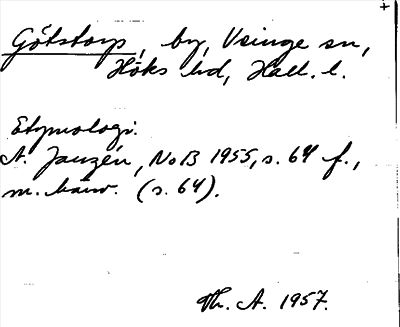 +
Götstorp, by, Veinge sn,
Höks hd, Hall. l.
Etymologi:
A. Janzén, NoB 1955, s. 64 f.,
m. hänv. (s. 64).
Th. A. 1957.